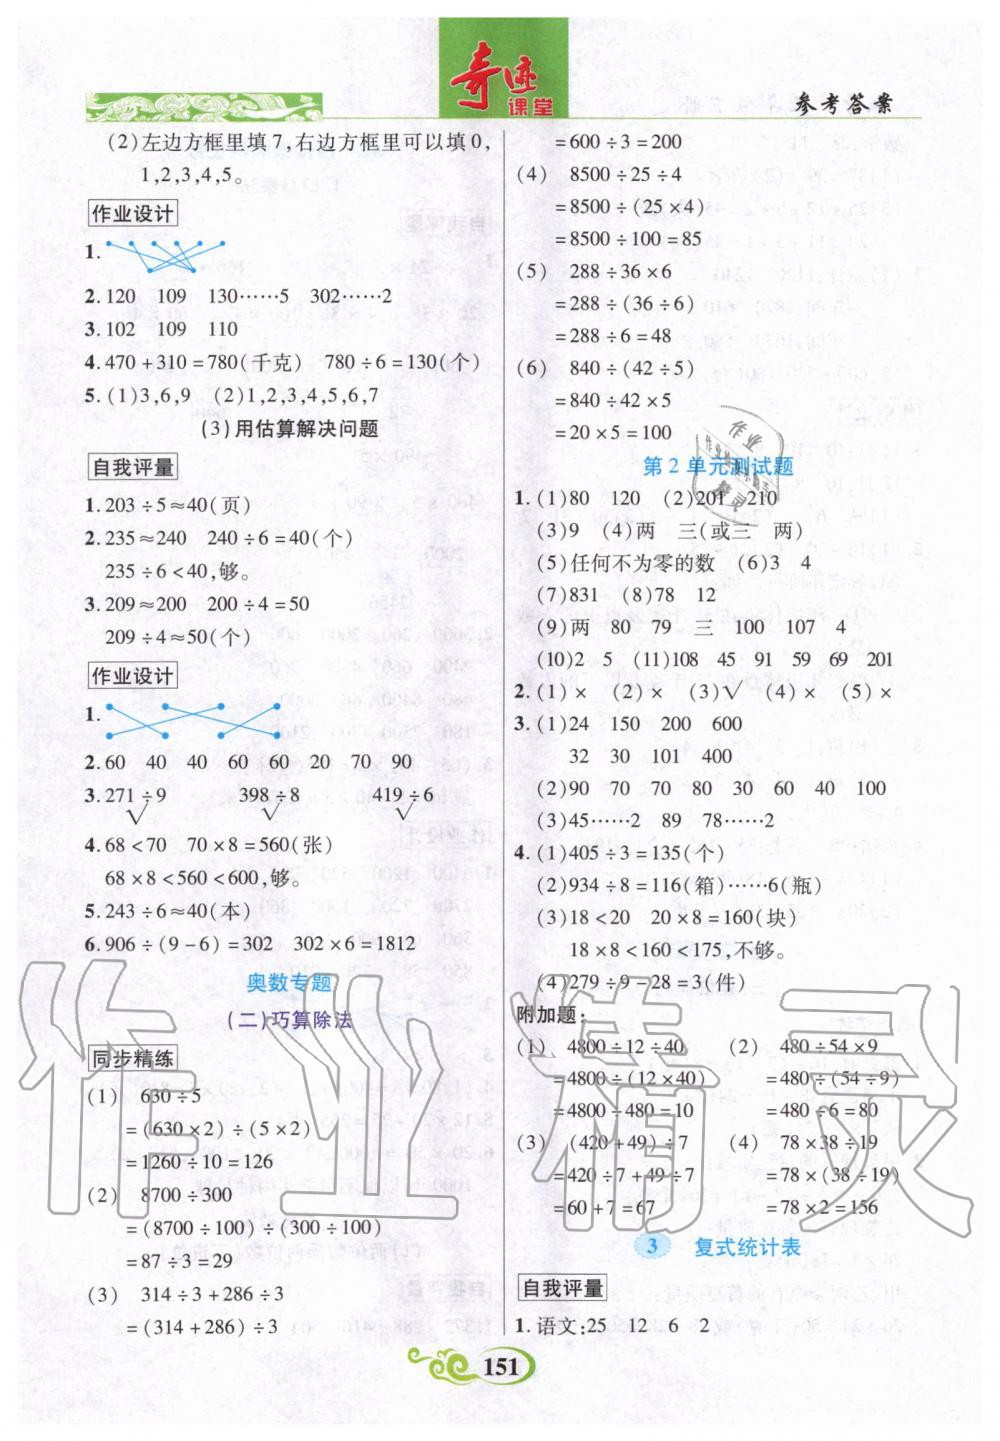 奇迹
课堂
参考答案
(2)左边方框里填7,右边方框里可以填0,
1,2,3,4,5。
作业设计
1.
2.120 109 130……5 302……2
3.102 109 110
4.470+310=780(千克) 780÷6=130(个)
5.(1)3,6,9 (2)1,2,3,4,5,6,7
(3)用估算解决问题
自我评量
1.203÷5≈40(页)
2.235≈240 240÷6=40(个)
235÷6<40,够。
3.209≈200 200÷4=50
209÷4≈50(个)
作业设计
1.
2.60 40 40 60 60 20 70 90
3.271÷9 398÷8 419÷6
√ √ √
4.68<70 70×8=560(张)
68×8<560<600,够。
5.243÷6≈40(本)
6.906÷(9-6)=302 302×6=1812
奥数专题
(二)巧算除法
同步精练
(1) 630÷5
=(630×2)÷(5×2)
=1260÷10=126
(2) 8700÷300
=(8700÷100)÷(300÷100)
=87÷3=29
(3) 314÷3+286÷3
=(314+286)÷3
=600÷3=200
(4) 8500÷25÷4
=8500÷(25×4)
=8500÷100=85
(5) 288÷36×6
=288÷(36÷6)
=288÷6=48
(6) 840÷(42÷5)
=840÷42×5
=20×5=100
第2单元测试题
1.(1)80 120 (2)201 210
(3)9 (4)两 三(或三 两)
(5)任何不为零的数 (6)3 4
(7)831 (8)78 12
(9)两 80 79 三 100 107 4
(10)2 5 (11)108 45 91 59 69 201
2.(1)× (2)× (3)√ (4)× (5)×
3.(1)24 150 200 600
32 30 101 400
(2)90 70 70 80 30 60 40 100
(3)45……2 89 78……2
4.(1)405÷3=135(个)
(2)934÷8=116(箱)……6(瓶)
(3)18<20 20×8=160(块)
18×8<160<175,不够。
(4)279÷9-28=3(件)
附加题:
(1) 4800÷12÷40 (2) 480÷54×9
=4800÷(12×40) =480÷(54÷9)
=4800÷480=10 =480÷6=80
(3) (420+49)÷7 (4) 78×38÷19
=420÷7+49÷7 =78×(38÷19)
=60+7=67 =78×2=156
3 复式统计表
自我评量
1.语文:25 12 6 2
151
作业精灵